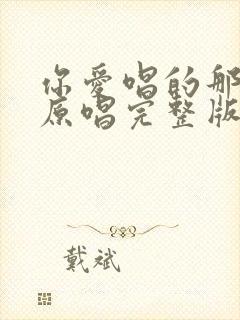 你爱唱的那
原唱完整版
戴斌